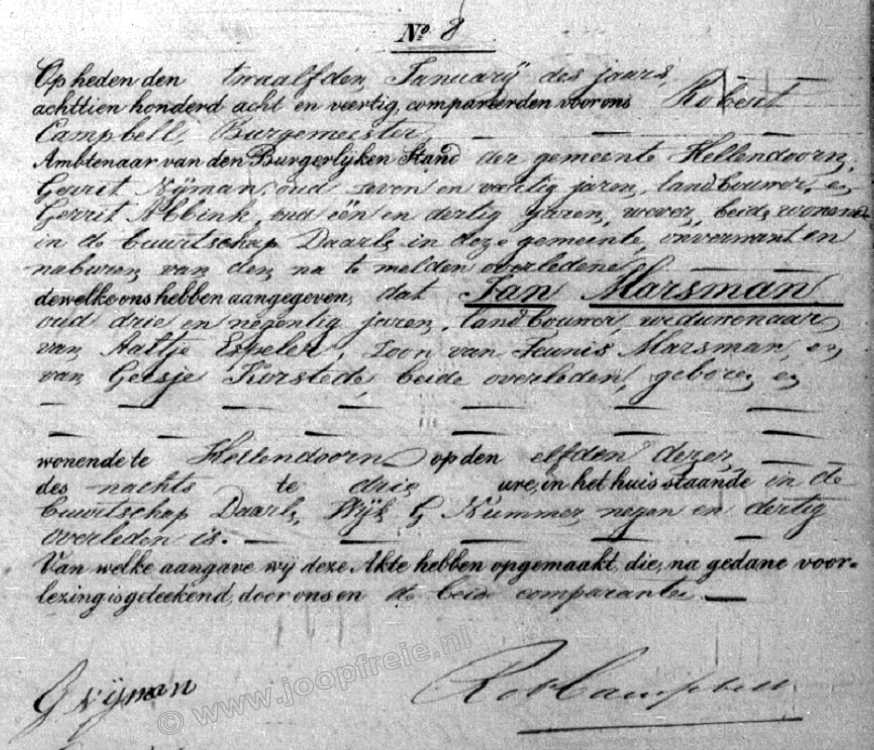 No. 8
Op heden den twaalfden Januarij des jaars
achttien honderd acht en veertig, compareerden voor ons Robert
Campbell, Burgemeester,
Ambtenaar van den Burgerlijken Stand der gemeente Hellendoorn,
Gerrit Nijman oud zeven en veertig jaren, landbouwer, en
Gerrit Abbink, oud één en dertig jaren, wever, beide wonende
in de buurtschap Daarle in deze gemeente, onverwant en
naburen van den na te melden overledene
dewelke ons hebben aangegeven, dat Jan Marsman
oud drie en negentig jaren, landbouwer, weduwenaar
van Aaltje Espeler, zoon van Teunis Marsman, en
van Geesje Korstede, beide overleden, geboren en
wonende te Hellendoorn op den elfden dezer,
des nachts te drie ure, in het huis staande in de
buurtschap Daarle, Wijk G Nummer negen en dertig
overleden is.
Van welke aangave wij deze Akte hebben opgemaakt, die, na gedane voor-
lezing is geteekend, door ons en de beide comparanten
G Nijman Rob Campbell
© www.joopfreie.nl